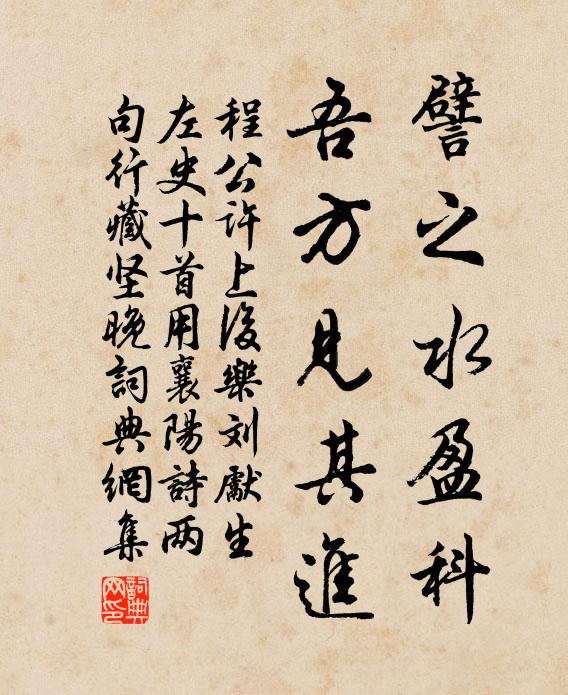 譬之水盈科
吾方見其進
程公许上後樂刘獻生
左史十首用襄陽詩两
句行藏坚晚詞典網集
詞典网印